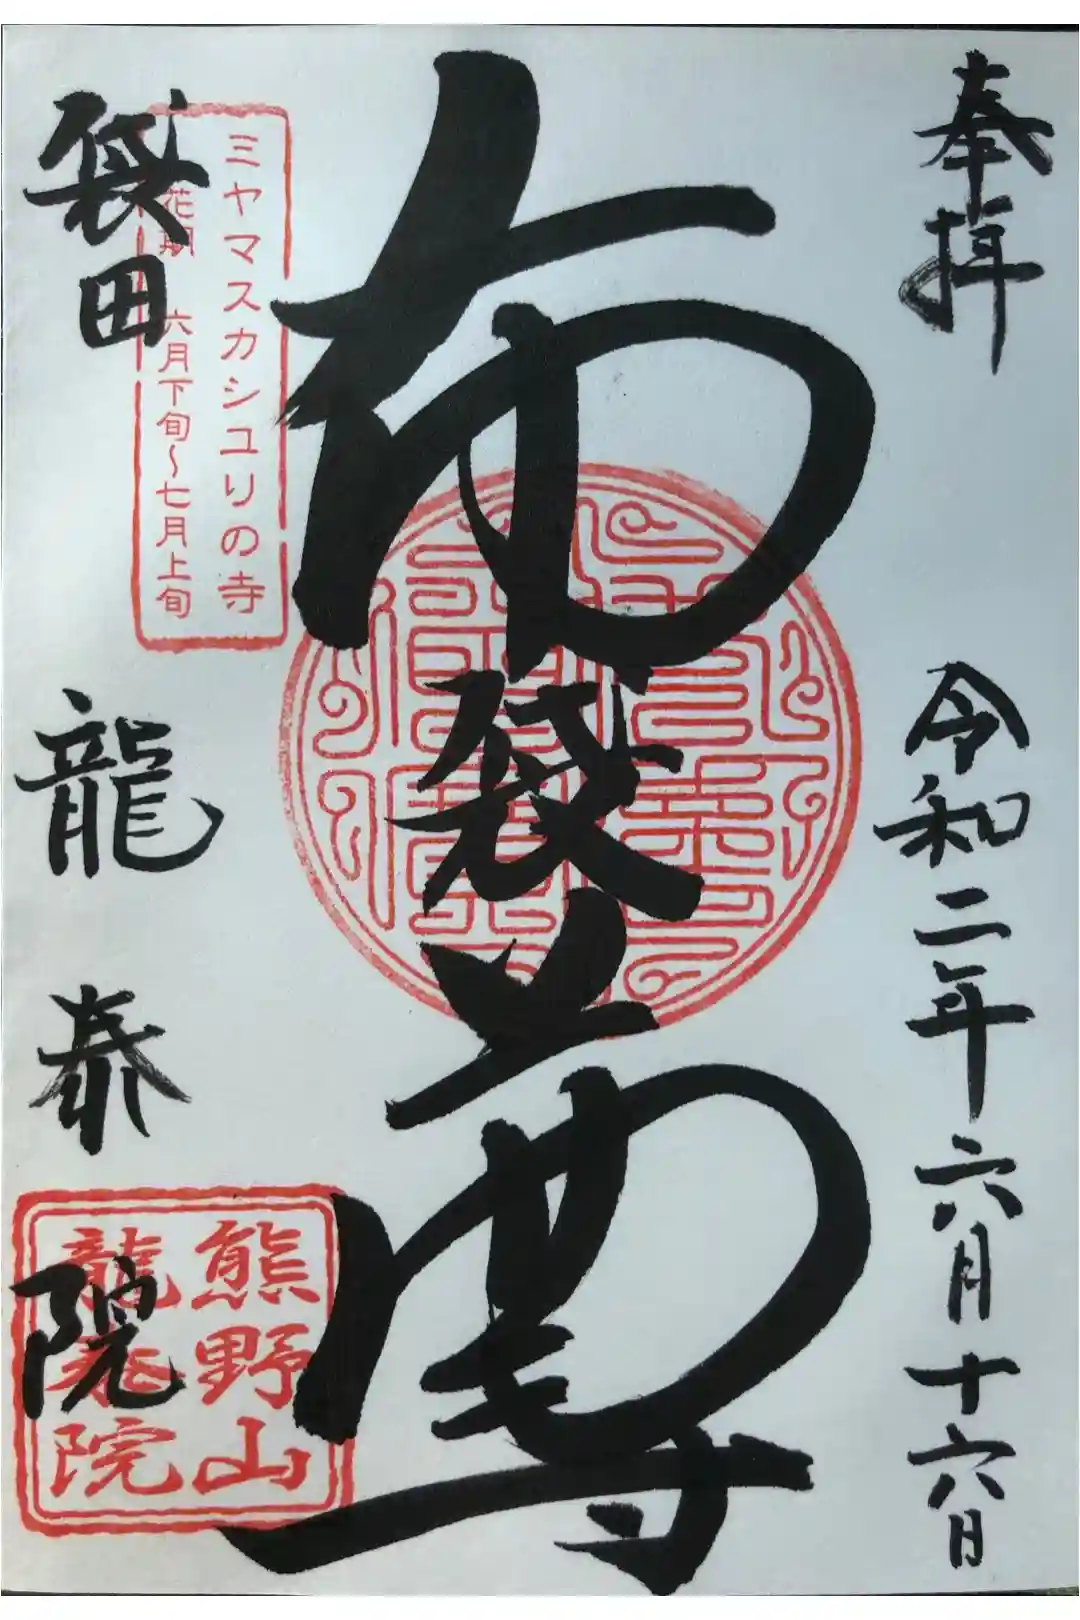 奉拝
令和二年六月十六日
布袋尊
ミヤマスカシユリの寺
花期 六月下旬～七月上旬
袋田
龍泰院
熊野山
龍泰院